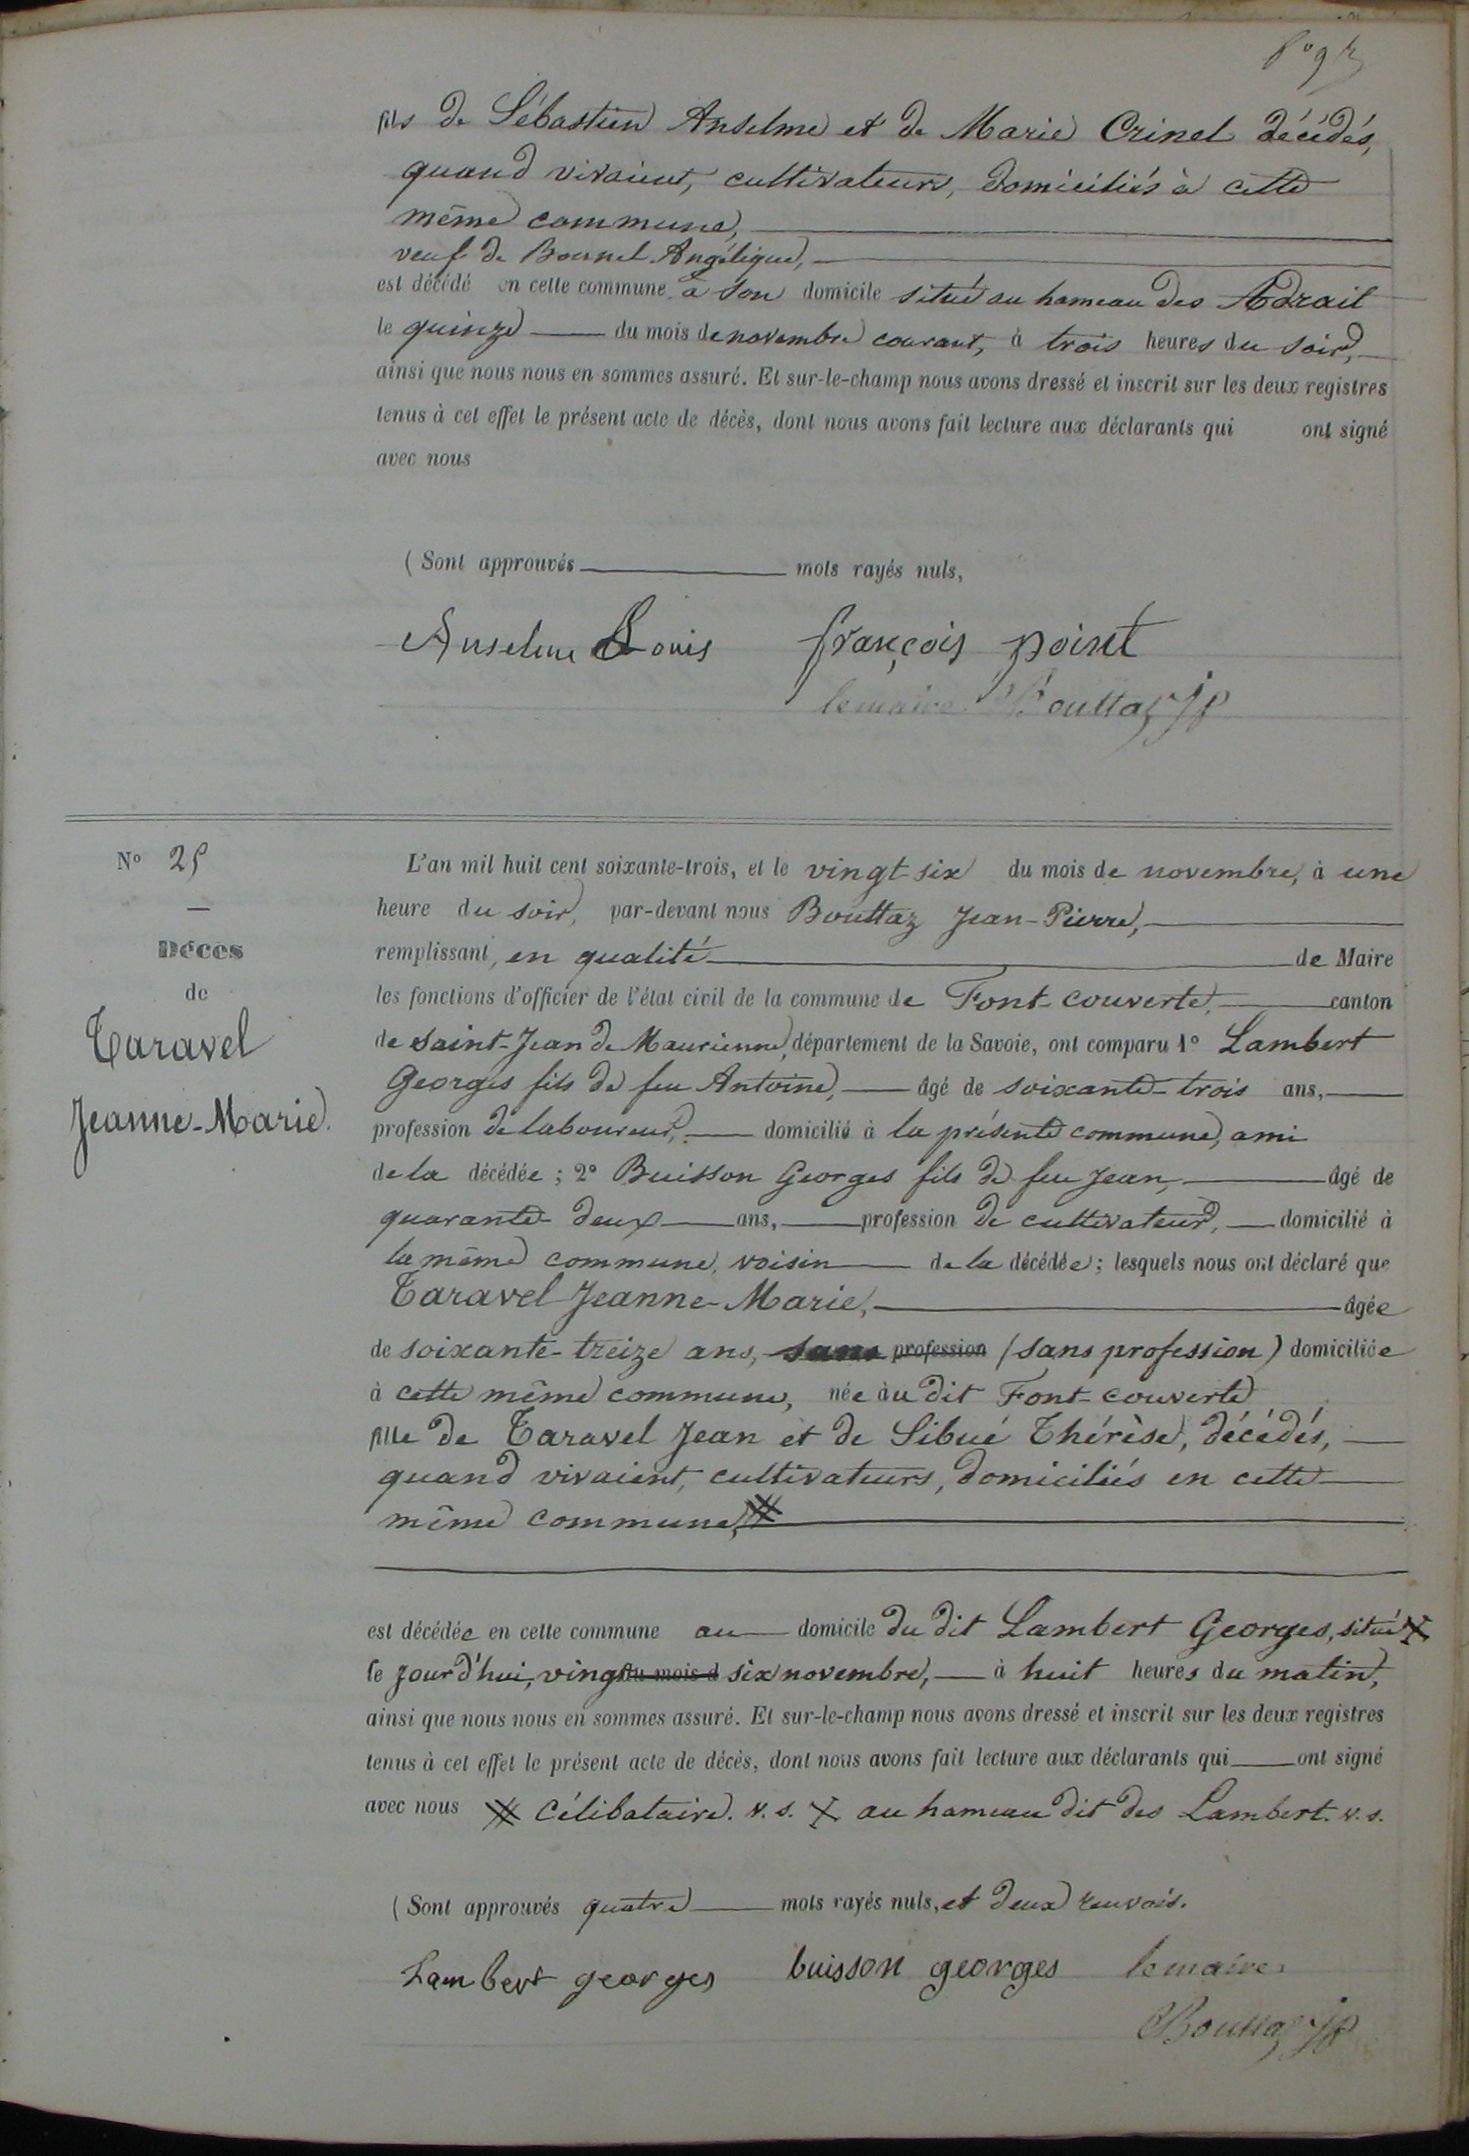 fils de Sébastien Anselme et de Marie Crinel décédés,
quand vivaient, cultivateurs, domiciliés à cette
même commune,
veuf de Bounel Angélique,
est décédé en cette commune à son domicile situé au hameau des Adrait
le quinze du mois de novembre courant, à trois heures du soir,
ainsi que nous nous en sommes assuré. Et sur-le-champ nous avons dressé et inscrit sur les deux registres
tenus à cet effet le présent acte de décès, dont nous avons fait lecture aux déclarants qui ont signé
avec nous
(Sont approuvés mots rayés nuls,
Anselme Louis françois point
le maire Bouttaz JP
N° 25
Décès
de
Taravel
Jeanne-Marie.
L'an mil huit cent soixante-trois, et le vingt-six du mois de novembre, à une
heure du soir, par-devant nous Bouttaz Jean-Pierre,
remplissant, en qualité de Maire
les fonctions d'officier de l'état civil de la commune de Font-couverte, canton
de Saint-Jean de Maurienne, département de la Savoie, ont comparu 1° Lambert
Georges fils de feu Antoine, âgé de soixante-trois ans,
profession de laboureur, domicilié à la présente commune, ami
de la décédée ; 2° Buisson Georges fils de feu Jean, âgé de
quarante-deux ans, profession de cultivateur, domicilié à
la même commune, voisin de la décédée ; lesquels nous ont déclaré que
Taravel Jeanne-Marie, âgée
de soixante-treize ans, sans profession (sans profession) domiciliée
à cette même commune, née au dit Font-couverte
fille de Taravel Jean et de Sibué Thérèse, décédés,
quand vivaient, cultivateurs, domiciliés en cette
même commune,
est décédée en cette commune au domicile du dit Lambert Georges, situé X
le jourd'hui, vingt du mois d six novembre, à huit heures du matin,
ainsi que nous nous en sommes assuré. Et sur-le-champ nous avons dressé et inscrit sur les deux registres
tenus à cet effet le présent acte de décès, dont nous avons fait lecture aux déclarants qui ont signé
avec nous Célibataire. v.s. X au hameau dit des Lambert. v.s.
(Sont approuvés quatre mots rayés nuls, et deux renvois.
Lambert georges buisson georges le maire
Bouttaz JP